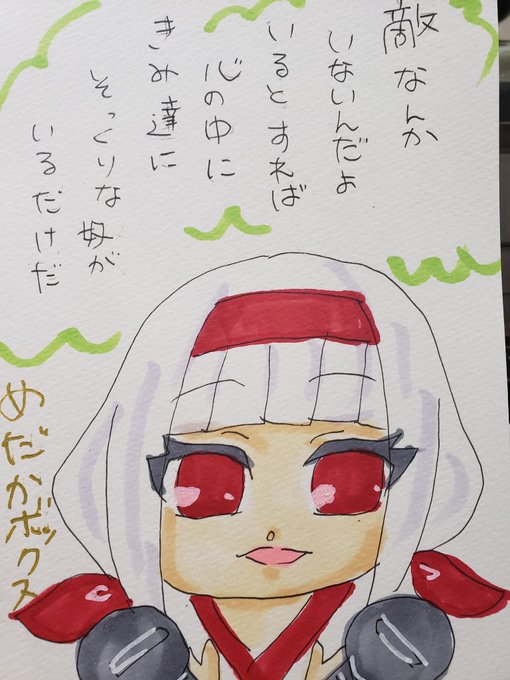 敵なんか
いないんだよ
いるとすれば
心の中に
きみ達に
そっくりな奴が
いるだけだ
めだかボックス